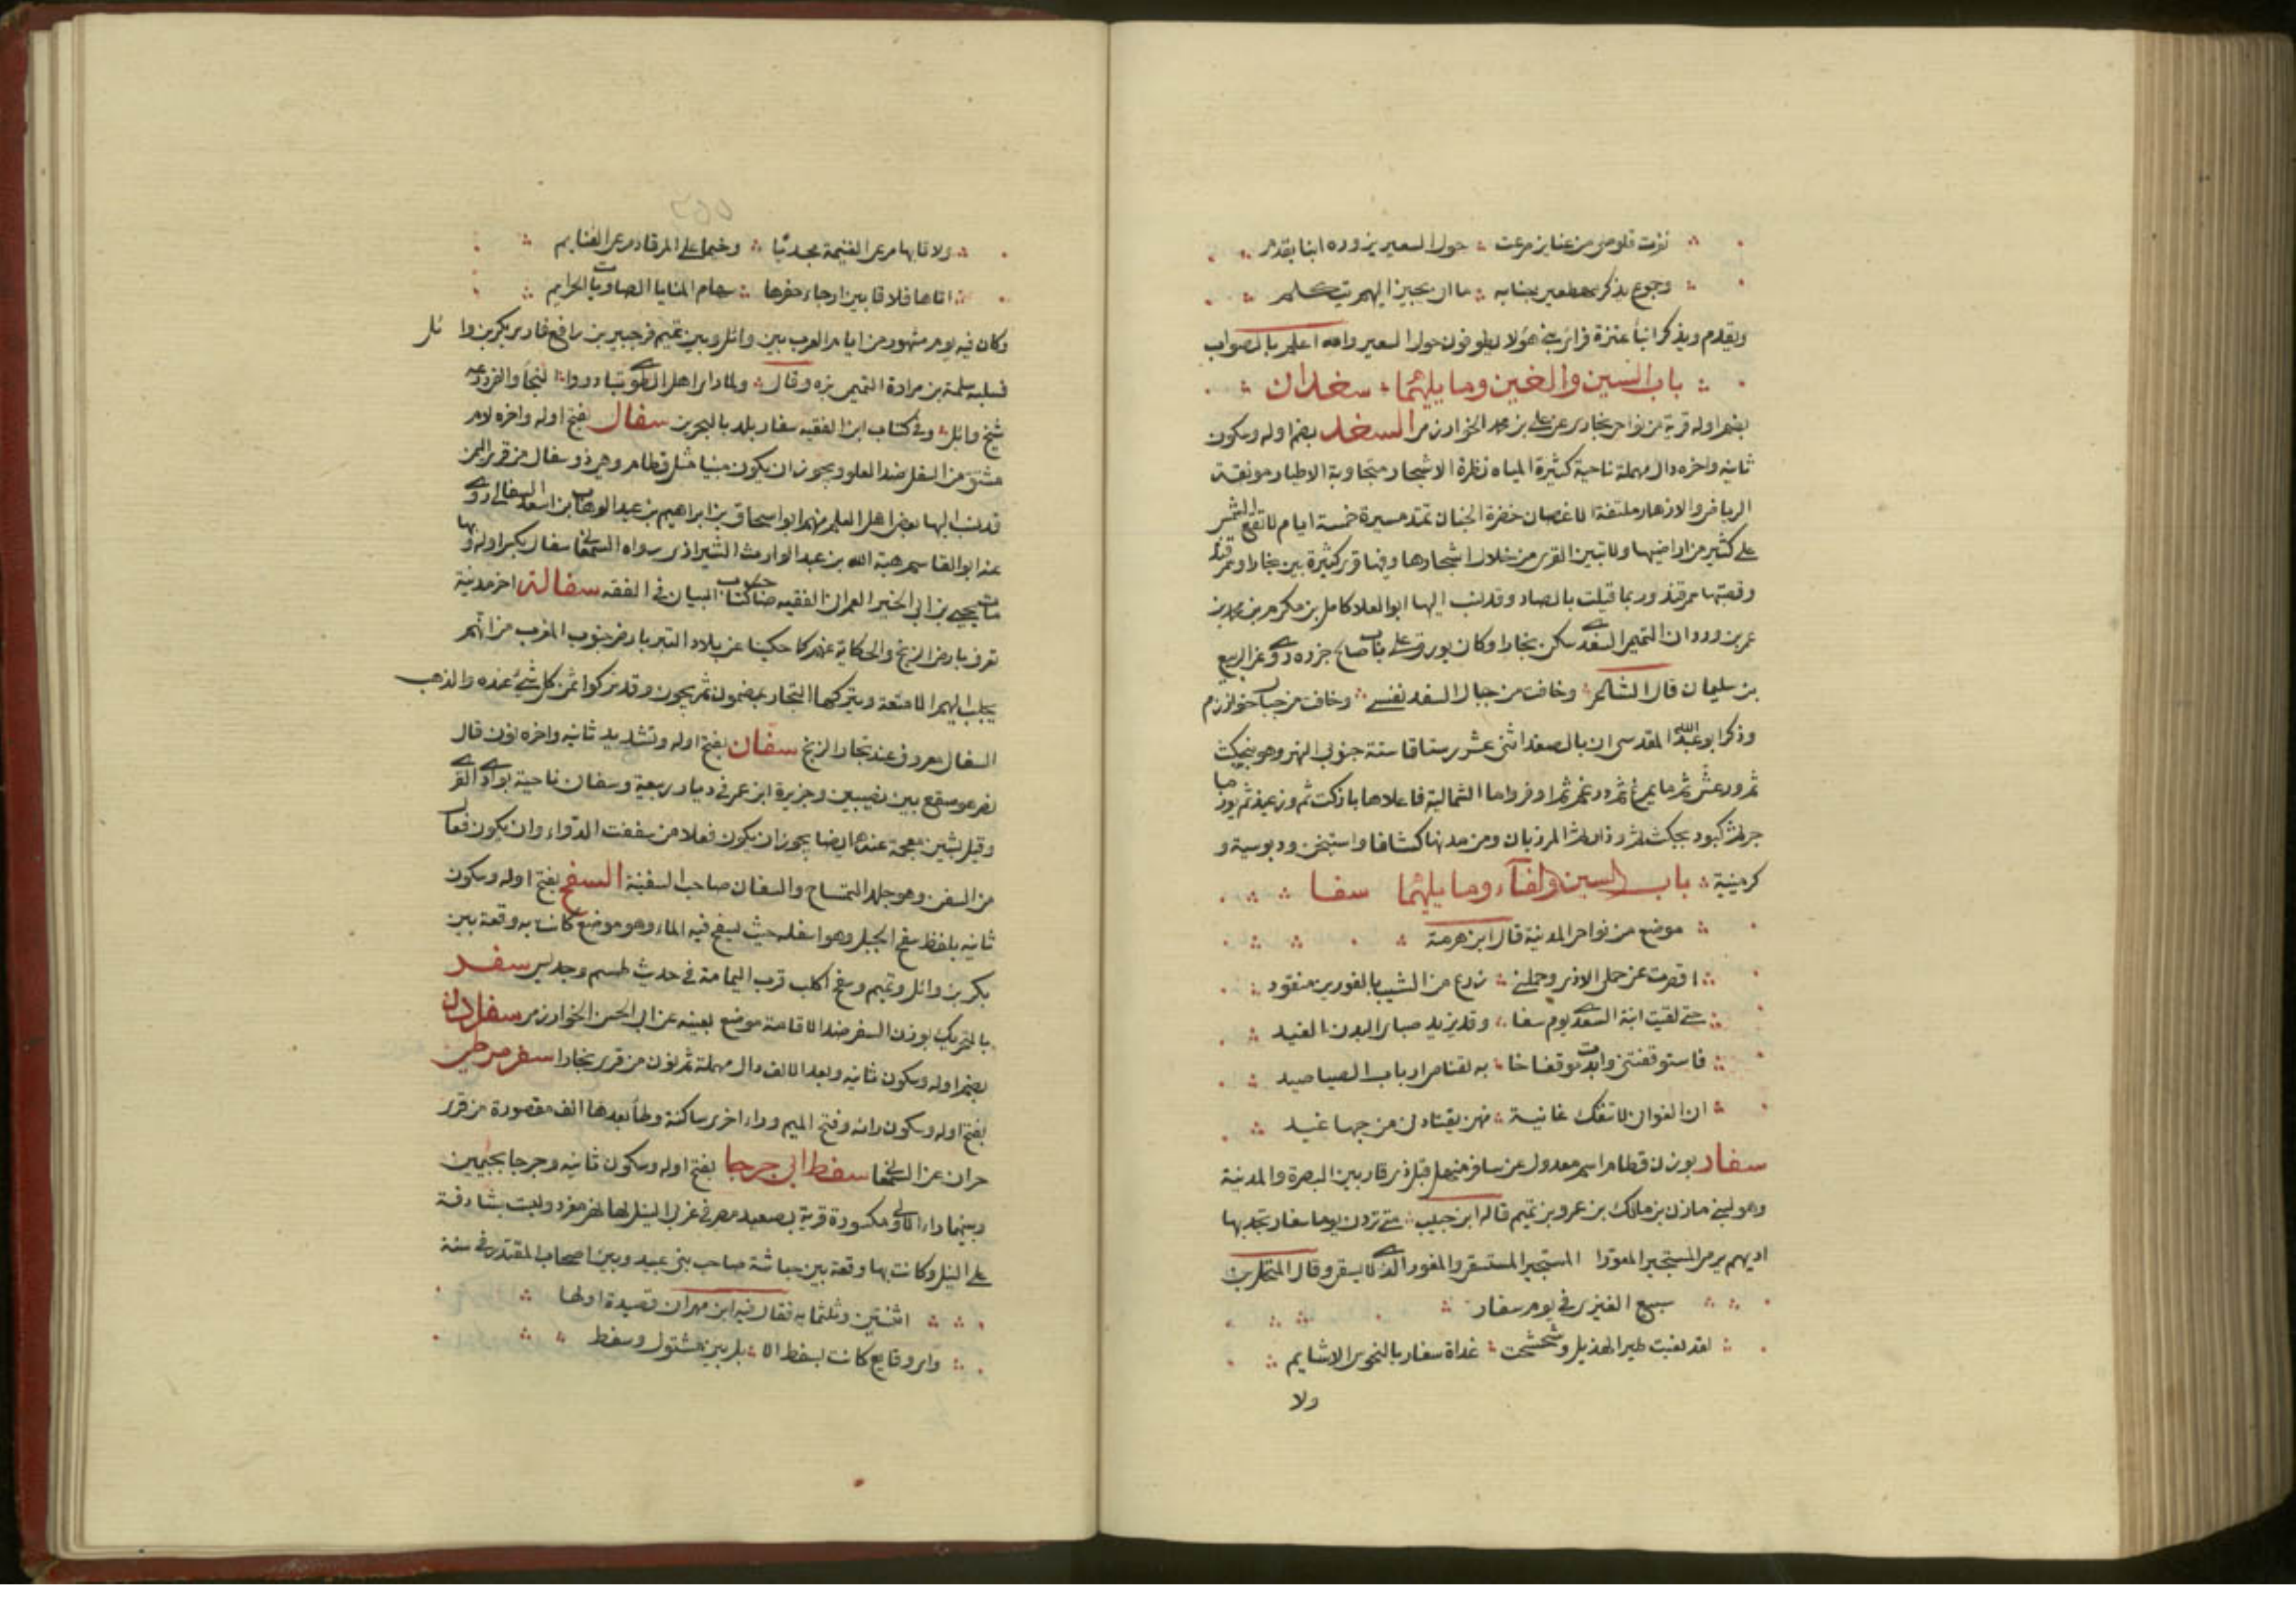 نفرت قلوصى من عتاير صرعت حول السعير يزوره ابنا يقدم
وجموع يذكر مهطعين جنابه ما ان يحير اليهم بتكلم
ويقدم ويذكر ابنا عنزة فرأى بنى هؤلا يطوفون حول السعير والله اعلم بالصواب
باب السين والغين وما يليهما سغدان
بضم اوله قرية من نواحى بخارى عن على بن محمد الخوارزمى السغد بضم اوله وسكون
ثانيه واخره دال مهملة ناحية كثيرة المياه نظرة الاشجار متجاوبة الاطيار مونقة
الرياض والازهار ملتفة الاغصان خضرة الجنان تمتد مسيرة خمسة ايام لا تقع الشمس
على كثير من اراضيها ولا تبين القرى من خلال اشجارها وفيها قرى كثيرة بين بخارا وسمرقند
وقصبتها سمرقند وربما قيلت بالصاد وقد نسب اليها ابو العلا كامل بن مكرم بن محمد بن
عمر بن وردان التميمى السغدى سكن بخارا وكان يورق على باب صالح جزره روى عن الربيع
بن سليمان قال الشاعر وخافت من جبال السغد نفسى وخافت من جبال خوارزم
وذكر ابو عبد الله المقدسى ان بالصغد اثنى عشر رستاقا ستة جنوبى النهر وهو بنجكث
ثم ورغش ثم مايمرغ ثم درغم ثم اوفر واما الشمالية فاعلاها ياركت ثم وزعيد ثم يورماجر
ثم كبود بجكث ثم وذار ثم المرزبان ومن مدنها كشافا واستيخن ودبوسية و
كرمينية باب السين والفاء وما يليهما سفا
موضع من نواحى المدينة قال ابن هرمة
اقصرت عن جهلى الادنى وحملنى زرع من الشيب بالفودين منقود
حتى لقيت ابنة السعدى يوم سفا وقد يزيد صباى البدن الغيد
فاستوقفتنى وابدت موقفا حسنا به لقناص ارباب الصيا صيد
ان الغوانى لا تنفك غانية منهن يقتادنى من حبها غيد
سفار بوزن قطام اسم معدول عن سافر منهل قبل ذى قار بين البصرة والمدينة
وهو لبنى مازن بن ملك بن عمرو بن تميم قاله ابن حبيب متى تردن يوما سفار تجد بها
اديهم يرمى المستجيز المعورا المستجيز المستسقى والمغور الذى لا يسقى وقال المنخل بن
سبيع العنزى فى يوم سفار
لقد نعبت طير الهذيل وشحشحت غداة سفار بالنحوس الاشايم
ولا
ولاقابها مرعى الغنيمة مجدبا وخيما على المرقاد مرعى الغنايم
اتاها فلاقا بين ارجاء حفرها سهام المنايا الصاديات الحوايم
وكان فيه يوم مشهور من ايام العرب بين بكر بن وائل وبين تميم فر جبير بن رافع فارس بكر بن وائل
فسلبه سلمة بن مرارة التميمى بزه وقال ولما راى اهل الطوى تبادروا النجا والفى درعه
شيخ وائل وفى كتاب ابن الفقيه سفار بلد بالبحرين سفال بفتح اوله واخره لام
مشتق من السفل ضد العلو ويجوز ان يكون مبنيا مثل قطام وهى ذو سفال من قرى اليمن
قد نسب اليها بعض اهل العلم منهم ابو اسحاق بن ابراهيم بن عبد الوهاب بن اسعد السفالى روى
عنه ابو القاسم هبة الله بن عبد الوارث الشيرازى رواه السمعانى سفال بكسر اوله وبها
مات يحيى بن ابى الخير العمرانى الفقيه صاحب كتاب البيان فى الفقه سفالة اخر مدينة
تعرف بارض الزنج والحكاية عنهم كما حكينا عن بلاد التبر بارض جنوب المغرب من انهم
يجلب اليهم الامتعة ويتركها التجار يمضون ثم يجون وقد تركوا ثمن كل شىء عنده والذهب
السفالى معروف عند تجار الزنج سفان بفتح اوله وتشديد ثانيه واخره نون قال
نصر هو صقع بين نصيبين وجزيرة ابن عمر فى ديار ربيعة وسفان ناحية بوادى القرى
وقيل بشين معجمة عندها ايضا يجوز ان يكون فعلان من سففت الدواء وان يكون فعال
من السفن وهو جلد التمساح والسفان صاحب السفينة السفح بفتح اوله وسكون
ثانيه بلفظ سفح الجبل وهو اسفله حيث ليسفح فيه الماء وهو موضع كانت به وقعة بين
بكر بن وائل وتميم وسفح اكلب قرب اليمامة فى حديث طسم وجديس سفر
بالتحريك بوزن السفر ضد الاقامة موضع بعينه عن ابى الحسن الخوارزمى سفرادن
بضم اوله وسكون ثانيه وبعد الالف دال مهملة ثم نون من قرى بخارا سفرمرطى
بفتح اوله وسكون رائه وفتح الميم وراء اخرى ساكنة وطا بعدها الف مقصورة من قرى
حران عن السمعانى سفط ابى جرجا بفتح اوله وسكون ثانيه وجرجا بجيمين
وبينهما راء الاولى مكسورة قرية بصعيد مصر فى غربى النيل لها نهر مفرد وليست بشارفة
على النيل وكانت بها وقعة بين حباشة صاحب بنى عبيد وبين اصحاب المقتدر فى سنة
اثنتين وثلثمايه فقال فيه ابن مهران قصيدة اولها
واى وقايع كانت بسفط الا بل بين مشتول وسفط